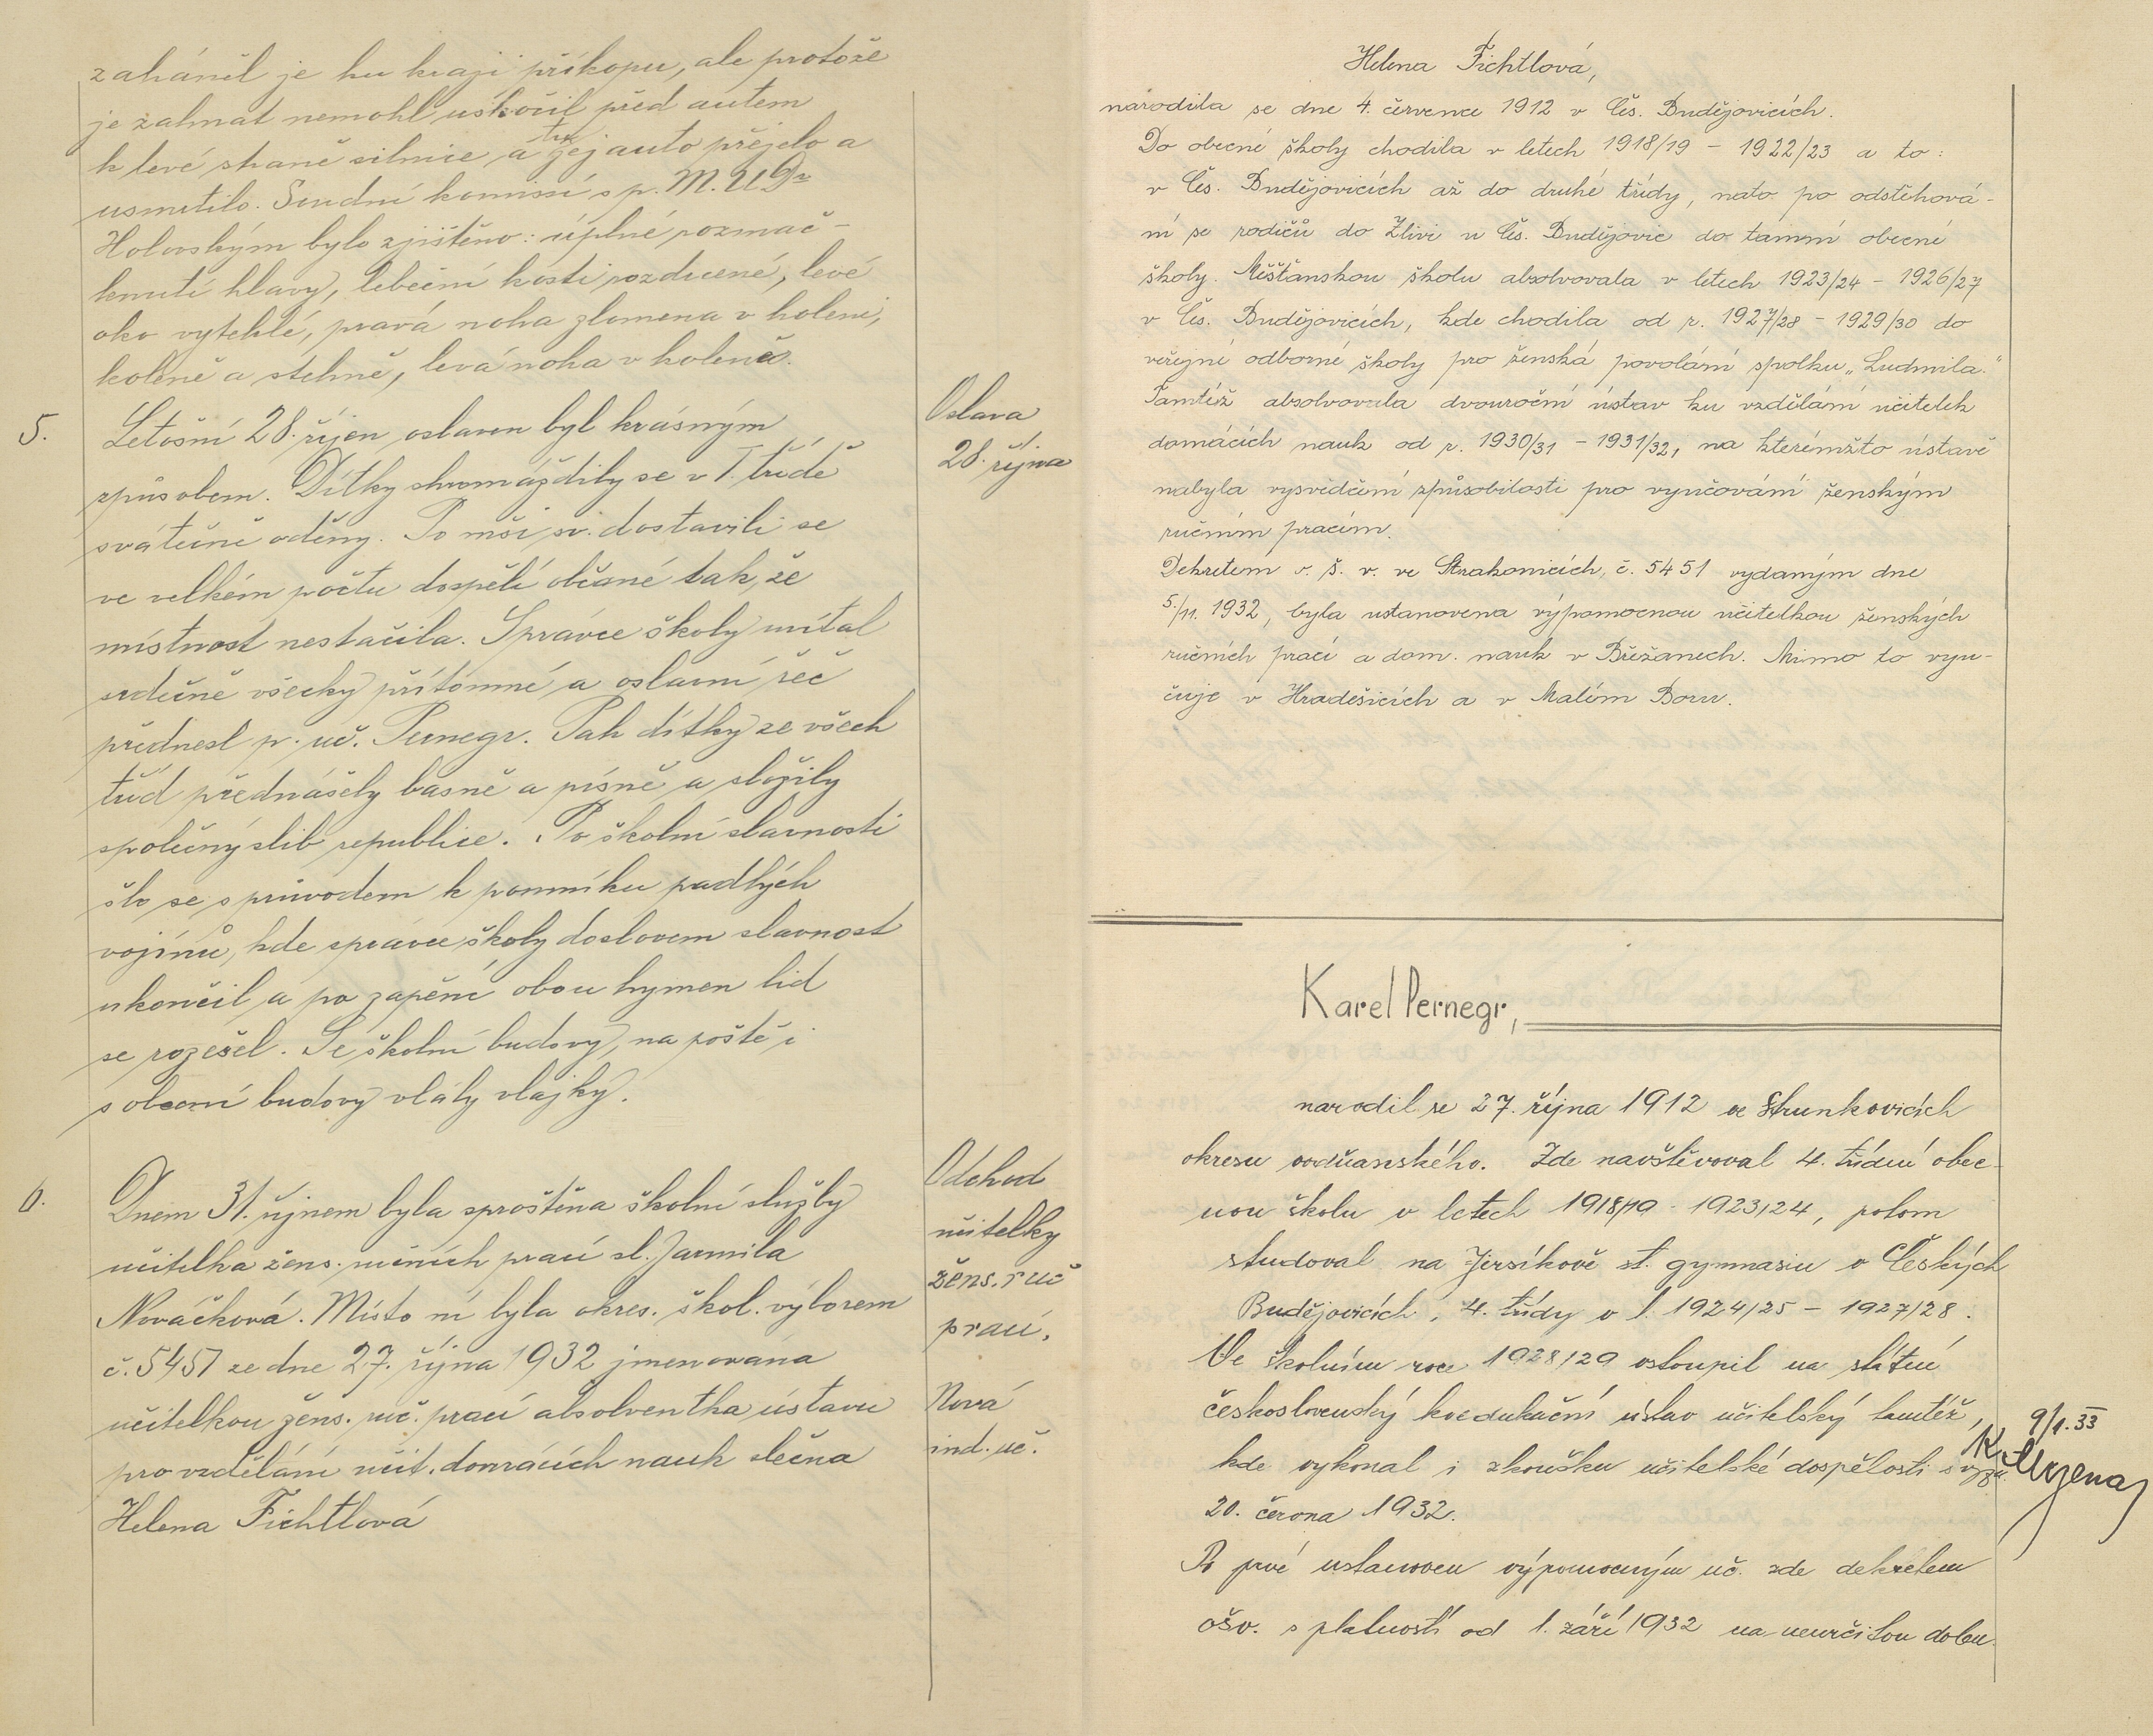 zaháněl je ku kraji příkopu, ale protože
je zahnat nemohl uskočil před autem
k levé straně silnice a tu jej auto přejelo a
usmrtilo. Soudní komissí s p. M. U Dr
Holovským bylo zjištěno: úplné rozmač-
knutí hlavy, lebeční kosti rozdrcené, levé
oko vyteklé, pravá noha zlomena v holeni,
koleně a stehně, levá noha v koleně.
5.
Letošní 28. říjen oslaven byl krásným
způsobem. Dítky shromáždily se v I. třídě
svátečně oděny. Po mši sv. dostavili se
ve velkém počtu dospělí občané tak, že
místnost nestačila. Správce školy uvítal
srdečně všecky přítomné a oslavní řeč
přednesl p. uč. Pernegr. Pak dítky ze všech
tříd přednášely básně a písně a složily
společný slib republice. Po školní slavnosti
šlo se s průvodem k pomníku padlých
vojínů, kde správce školy doslovem slavnost
ukončil a po zapění obou hymen lid
se rozešel. Se školní budovy, na poště i
s obecní budovy vlály vlajky.
Oslava
28. října
6.
Dnem 31. říjnem byla sproštěna školní služby
učitelka žens. ručních prací sl. Jarmila
Nováčková. Místo ní byla okres. škol. výborem
č. 5451 ze dne 27. října 1932 jmenována
učitelkou žens. ruč. prací absolventka ústavu
pro vzdělání učit. domácích nauk slečna
Helena Fichtlová
Odchod
učitelky
žens. ruč
prací.
Nová
ind. uč.
Helena Fichtlová,
narodila se dne 4. července 1912 v Čes. Budějovicích.
Do obecné školy chodila v letech 1918/19 - 1922/23 a to:
v Čes. Budějovicích až do druhé třídy, nato po odstěhová-
ní se rodičů do Zlivi u Čes. Budějovic do tamní obecné
školy. Měšťanskou školu absolvovala v letech 1923/24 - 1926/27
v Čes. Budějovicích, kde chodila od r. 1927/28 - 1929/30 do
veřejné odborné školy pro ženská povolání spolku „Ludmila.“
Tamtéž absolvovala dvouroční ústav ku vzdělání učitelek
domácích nauk od r. 1930/31 - 1931/32, na kterémžto ústavě
nabyla vysvědčení způsobilosti pro vyučování ženským
ručním pracím.
Dekretem o. š. v. ve Strakonicích, č. 5451 vydaným dne
5./11. 1932, byla ustanovena výpomocnou učitelkou ženských
ručních prací a dom. nauk v Břežanech. Mimo to vyu-
čuje v Hradešicích a v Malém Boru.
Karel Pernegr,
narodil se 27. října 1912 ve Strunkovicích
okresu vodňanského. Zde navštěvoval 4. třídní obec-
nou školu v letech 1918/19 - 1923/24, potom
studoval na Jirsíkově st. gymnasiu v Českých
Budějovicích, 4. třídy v l. 1924/25 - 1927/28.
Ve školním roce 1928/29 vstoupil na státní
československý koedukační ústav učitelský tamtéž,
kde vykonal i zkoušku učitelské dospělosti s vyzn.
20. června 1932.
Po prvé ustanoven výpomocným uč. zde dekretem
ošv. s platností od 1. září 1932 na neurčitou dobu.
9/1. 33